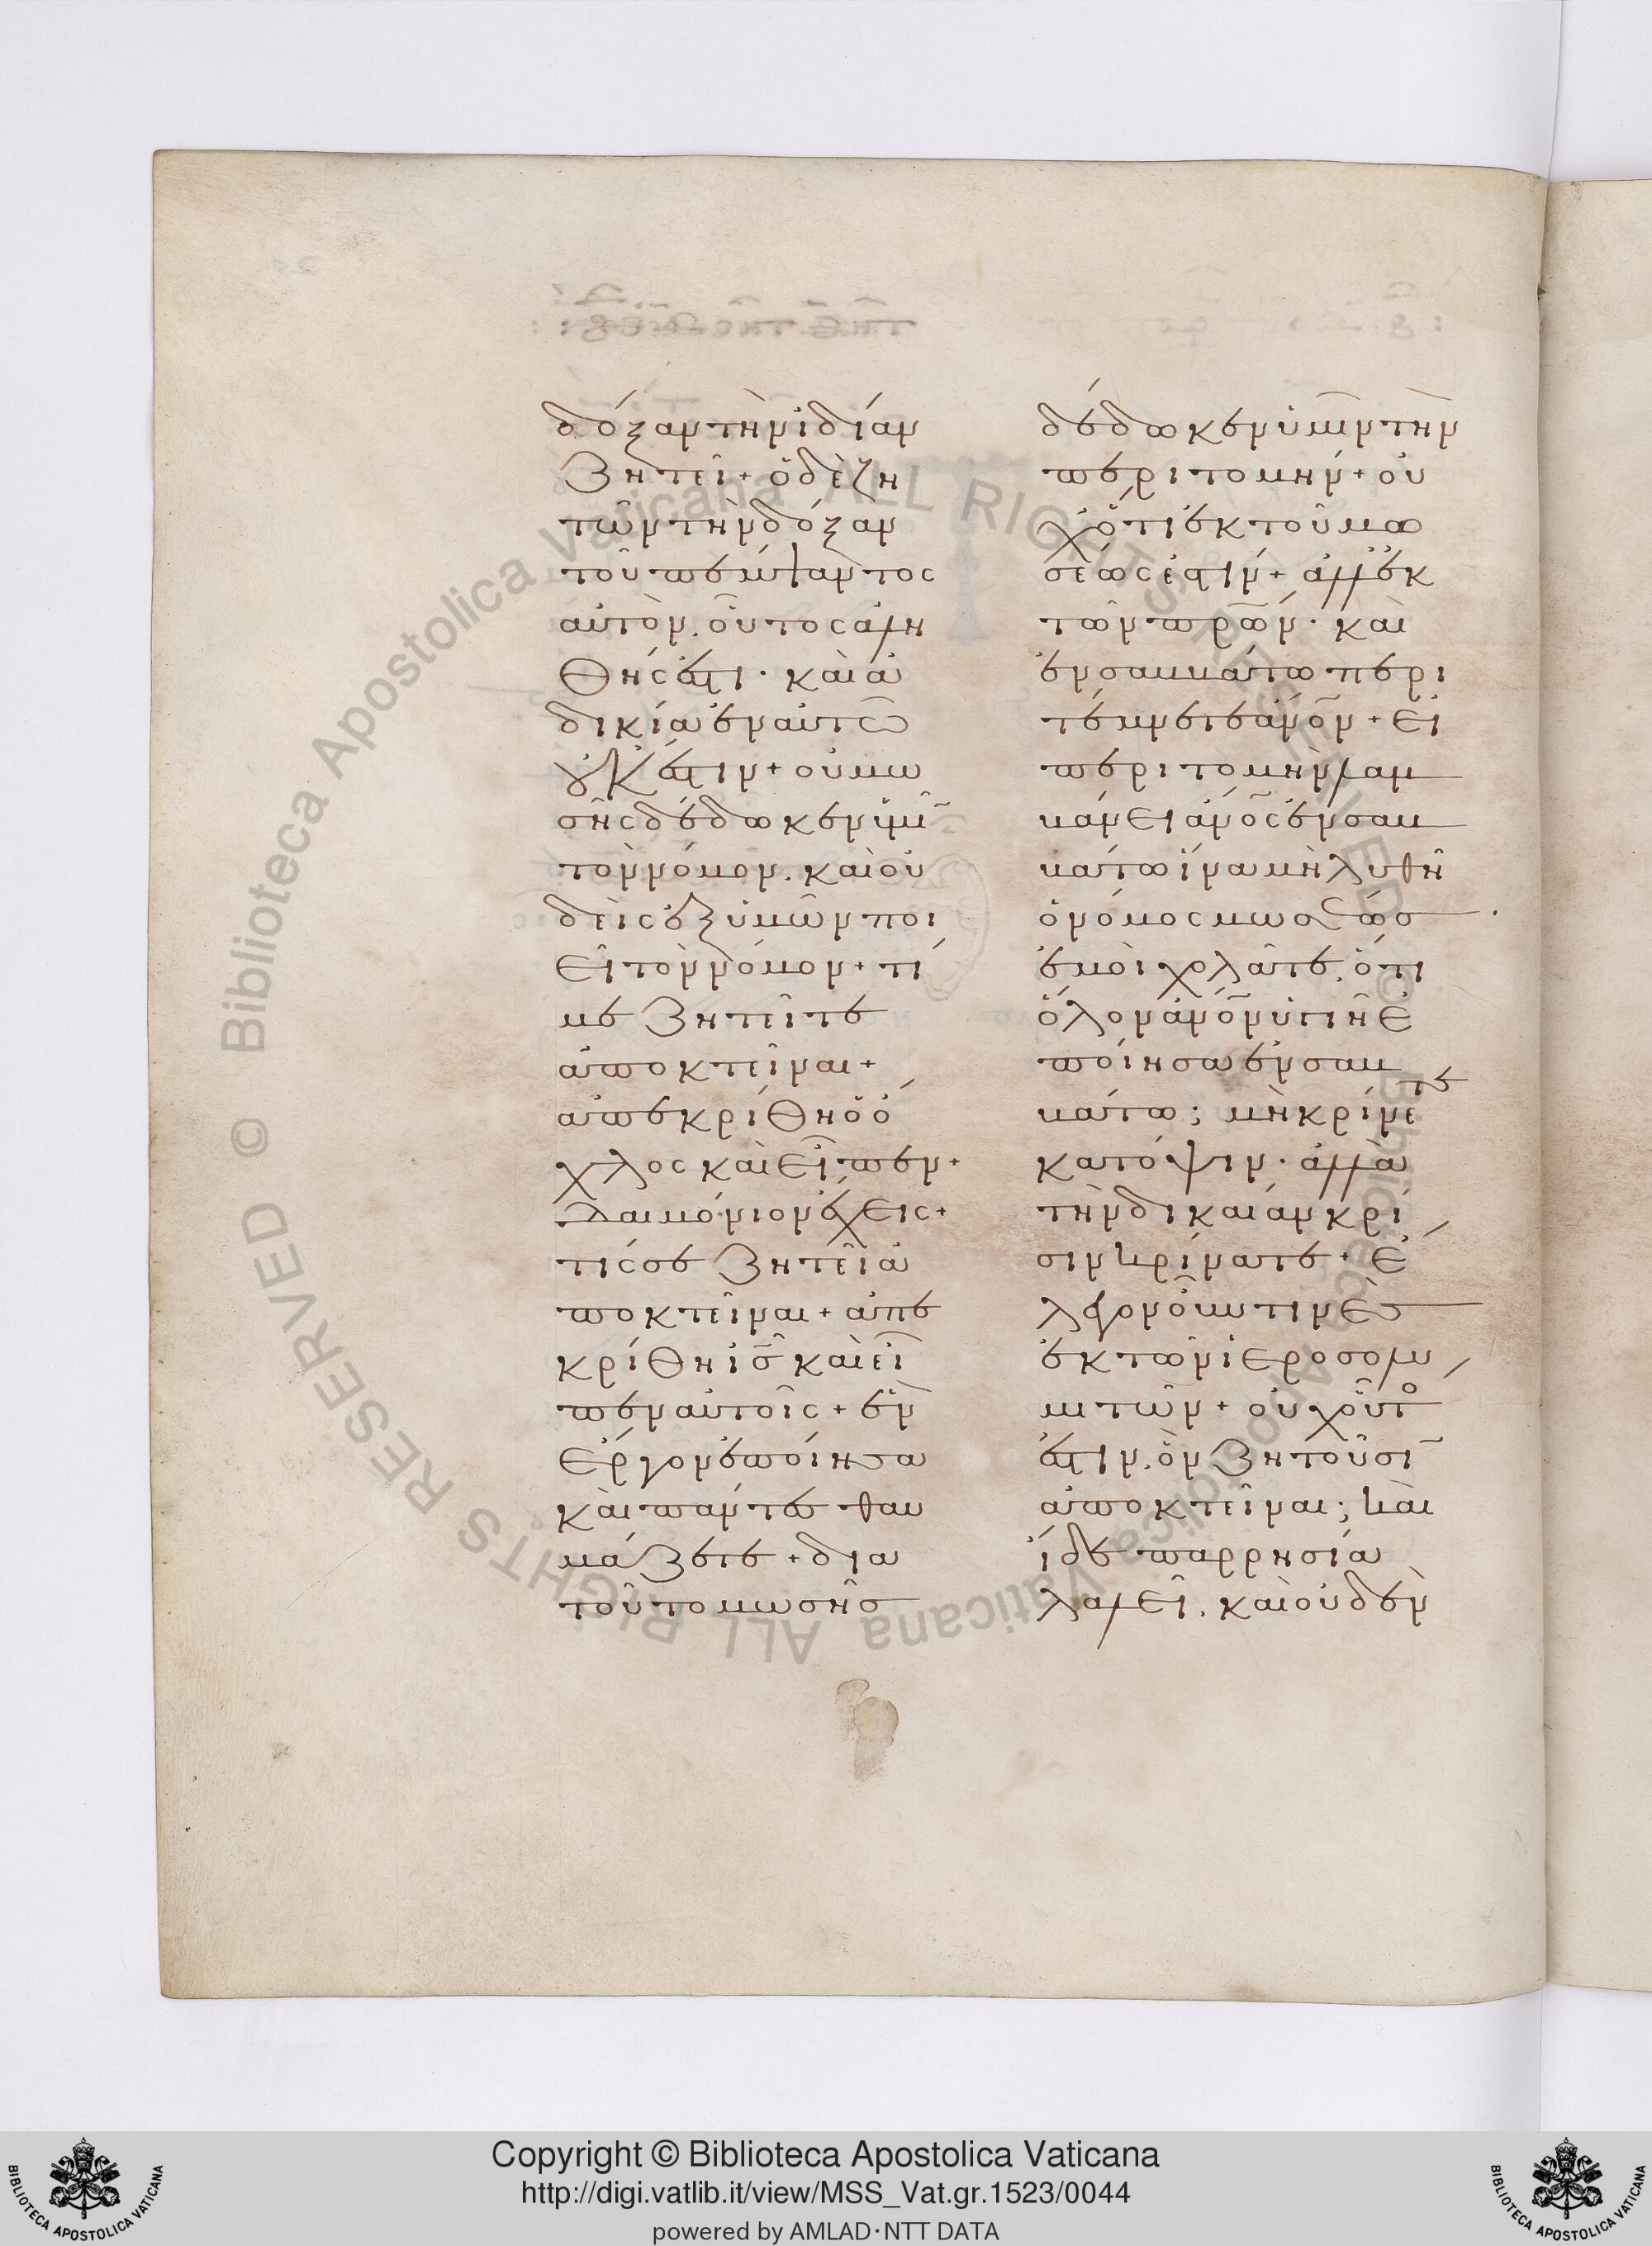 δόξαν τὴν ἰδίαν
ζητεῖ + ὁ δὲ ζη
τῶν τὴν δόξαν
τοῦ πέμψαντος
αὐτὸν. οὗτος ἀλη
θής ἐστι · καὶ ἀ
δικία ἐν αὐτῶ
οὐκ ἔστιν + οὐ μω
σῆς δέδωκεν ὑμῖ
τὸν νόμον. καὶ οὐ
δεὶς ἐξ ὑμῶν ποι
εῖ τὸν νόμον + τί
με ζητεῖτε
ἀποκτεῖναι +
ἀπεκρίθη ὁ ὄ
χλος καὶ εἶπεν +
δαιμόνιον ἔχεις +
τίς σε ζητεῖ ἀ
ποκτεῖναι + ἀπε
κρίθη ὁ ις καὶ εἶ
πεν αὐτοῖς + ἓν
ἔργον ἐποίησα
καὶ πάντες θαυ
μάζετε + δια
τοῦτο μωσῆς
δέδωκεν ὑμῖν τὴν
περιτομήν + οὐ
χ ὅτι ἐκ τοῦ μω
σέως ἐστίν + ἀλλ ἐκ
τῶν πρων · καὶ
ἐν σαββάτω περι
τέμνετε ανον + εἰ
περιτομὴν λαμ
βάνει ανος ἐν σαβ
βάτω ἵνα μὴ λυθῆ
ὁ νόμος μωσέως
ἐμοὶ χολᾶτε, ὅτι
ὅλον ανον ὑγιῆ ἐ
ποίησα ἐν σαβ
βάτω; μὴ κρίνετε
κατ όψιν · ἀλλὰ
τὴν δικαίαν κρί
σιν κρίνατε + ἔ
λεγον οὖν τινὲς
ἐκ τῶν ἱεροσολυ
μιτῶν + οὐχ οὗτο
ἐστιν. ὃν ζητοῦσι
ἀποκτεῖναι; καὶ
ἴδε παρρησία
λαλεῖ. καὶ οὐδὲν
ALL RIGHTS RESERVED © Biblioteca Apostolica Vaticana ALL RIGHTS RESERVED © Biblioteca Apostolica Vaticana
Copyright © Biblioteca Apostolica Vaticana
http://digi.vatlib.it/view/MSS_Vat.gr.1523/0044
powered by AMLAD·NTT DATA
BIBLIOTECA APOSTOLICA VATICANA
BIBLIOTECA APOSTOLICA VATICANA